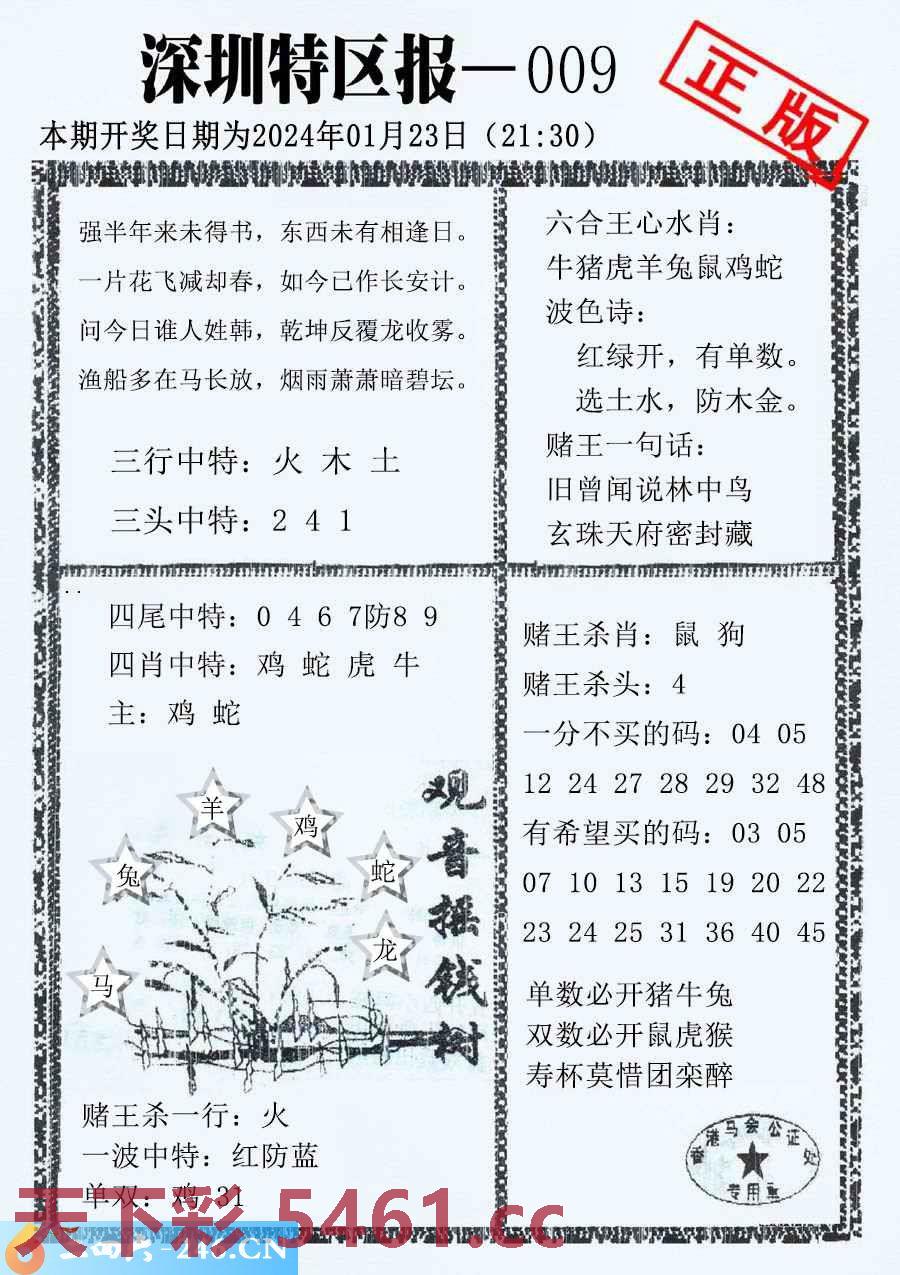 深圳特区报—009
正版
本期开奖日期为2024年01月23日（21:30）
强半年来未得书，东西未有相逢日。
一片花飞减却春，如今已作长安计。
问今日谁人姓韩，乾坤反覆龙收雾。
渔船多在马长放，烟雨萧萧暗碧坛。
三行中特：火 木 土
三头中特：2 4 1
六合王心水肖：
牛猪虎羊兔鼠鸡蛇
波色诗：
红绿开，有单数。
选土水，防木金。
赌王一句话：
旧曾闻说林中鸟
玄珠天府密封藏
四尾中特：0 4 6 7防8 9
四肖中特：鸡 蛇 虎 牛
主：鸡 蛇
羊
鸡
兔
蛇
龙
马
观音摇钱树
赌王杀一行：火
一波中特：红防蓝
单双：鸡 31
赌王杀肖：鼠 狗
赌王杀头：4
一分不买的码：04 05
12 24 27 28 29 32 48
有希望买的码：03 05
07 10 13 15 19 20 22
23 24 25 31 36 40 45
单数必开猪牛兔
双数必开鼠虎猴
寿杯莫惜团栾醉
香港马会公证处
专用章
天下彩 5461.cc